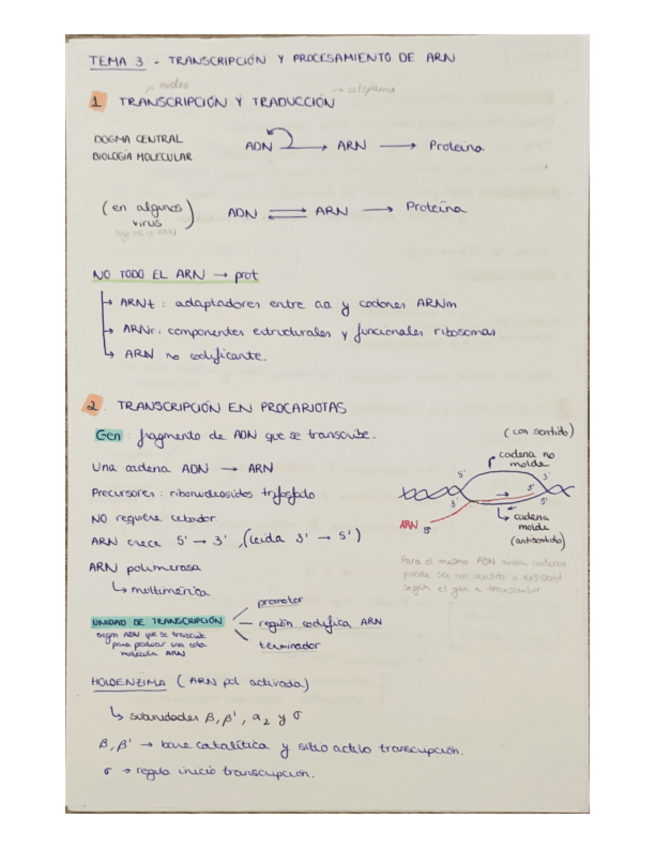 TEMA 3 - TRANSCRIPCIÓN Y PROCESAMIENTO DE ARN
→ núcleo → citoplasma
1 TRANSCRIPCIÓN Y TRADUCCIÓN
DOGMA CENTRAL
BIOLOGÍA MOLECULAR
ADN → ARN → Proteína
(en algunos virus)
ADN ⇌ ARN → Proteína
NO TODO EL ARN → prot
→ ARNt : adaptadores entre aa y codones ARNm
→ ARNr : componentes estructurales y funcionales ribosomas
→ ARN no codificante.
2. TRANSCRIPCIÓN EN PROCARIOTAS
Gen : fragmento de ADN que se transcribe.
(con sentido)
cadena no
molde
Una cadena ADN → ARN
5' 3'
Precursores : ribonucleosidos trifosfado
3' 3' 5'
NO requiere cebador.
ARN 5'
cadena
molde
(antisentido)
ARN crece 5' → 3' , (leída 3' → 5')
ARN polimerasa
↳ multimérica
Para el mismo ADN ambas cadenas
puede ser con sentido o
según el gen a transcribir
UNIDAD DE TRANSCRIPCIÓN
promotor
región codifica ARN
terminador
según ADN que se transcribe
para producir una sola
molécula ARN
HOLOENZIMA (ARN pol activada)
↳ subunidades β, β', α2 y σ
β, β' → base catalítica y sitio activo transcripción.
σ → regula inicio transcripción.